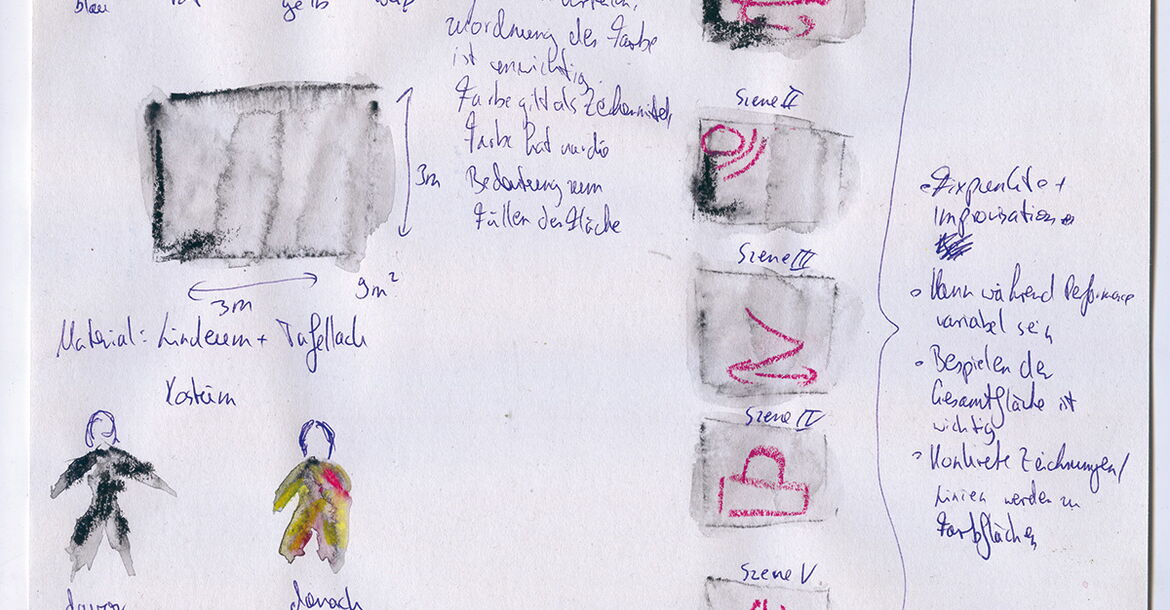 blau
gelb
Zuordnung der Farbe
ist unwichtig
Farbe gilt als Zeichenmittel,
Farbe hat nur die
Bedeutung zum
Füllen der Fläche
3m
3m
9m²
Material: Linoleum + Tafellack
Kostüm
davor
danach
Szene II
Szene III
Szene IV
Szene V
Fixpunkte +
Improvisation
Kann während Performance
variabel sein
Bespielen der
Gesamtfläche ist
wichtig
Konkrete Zeichnungen/
Linien werden zu
Farbflächen